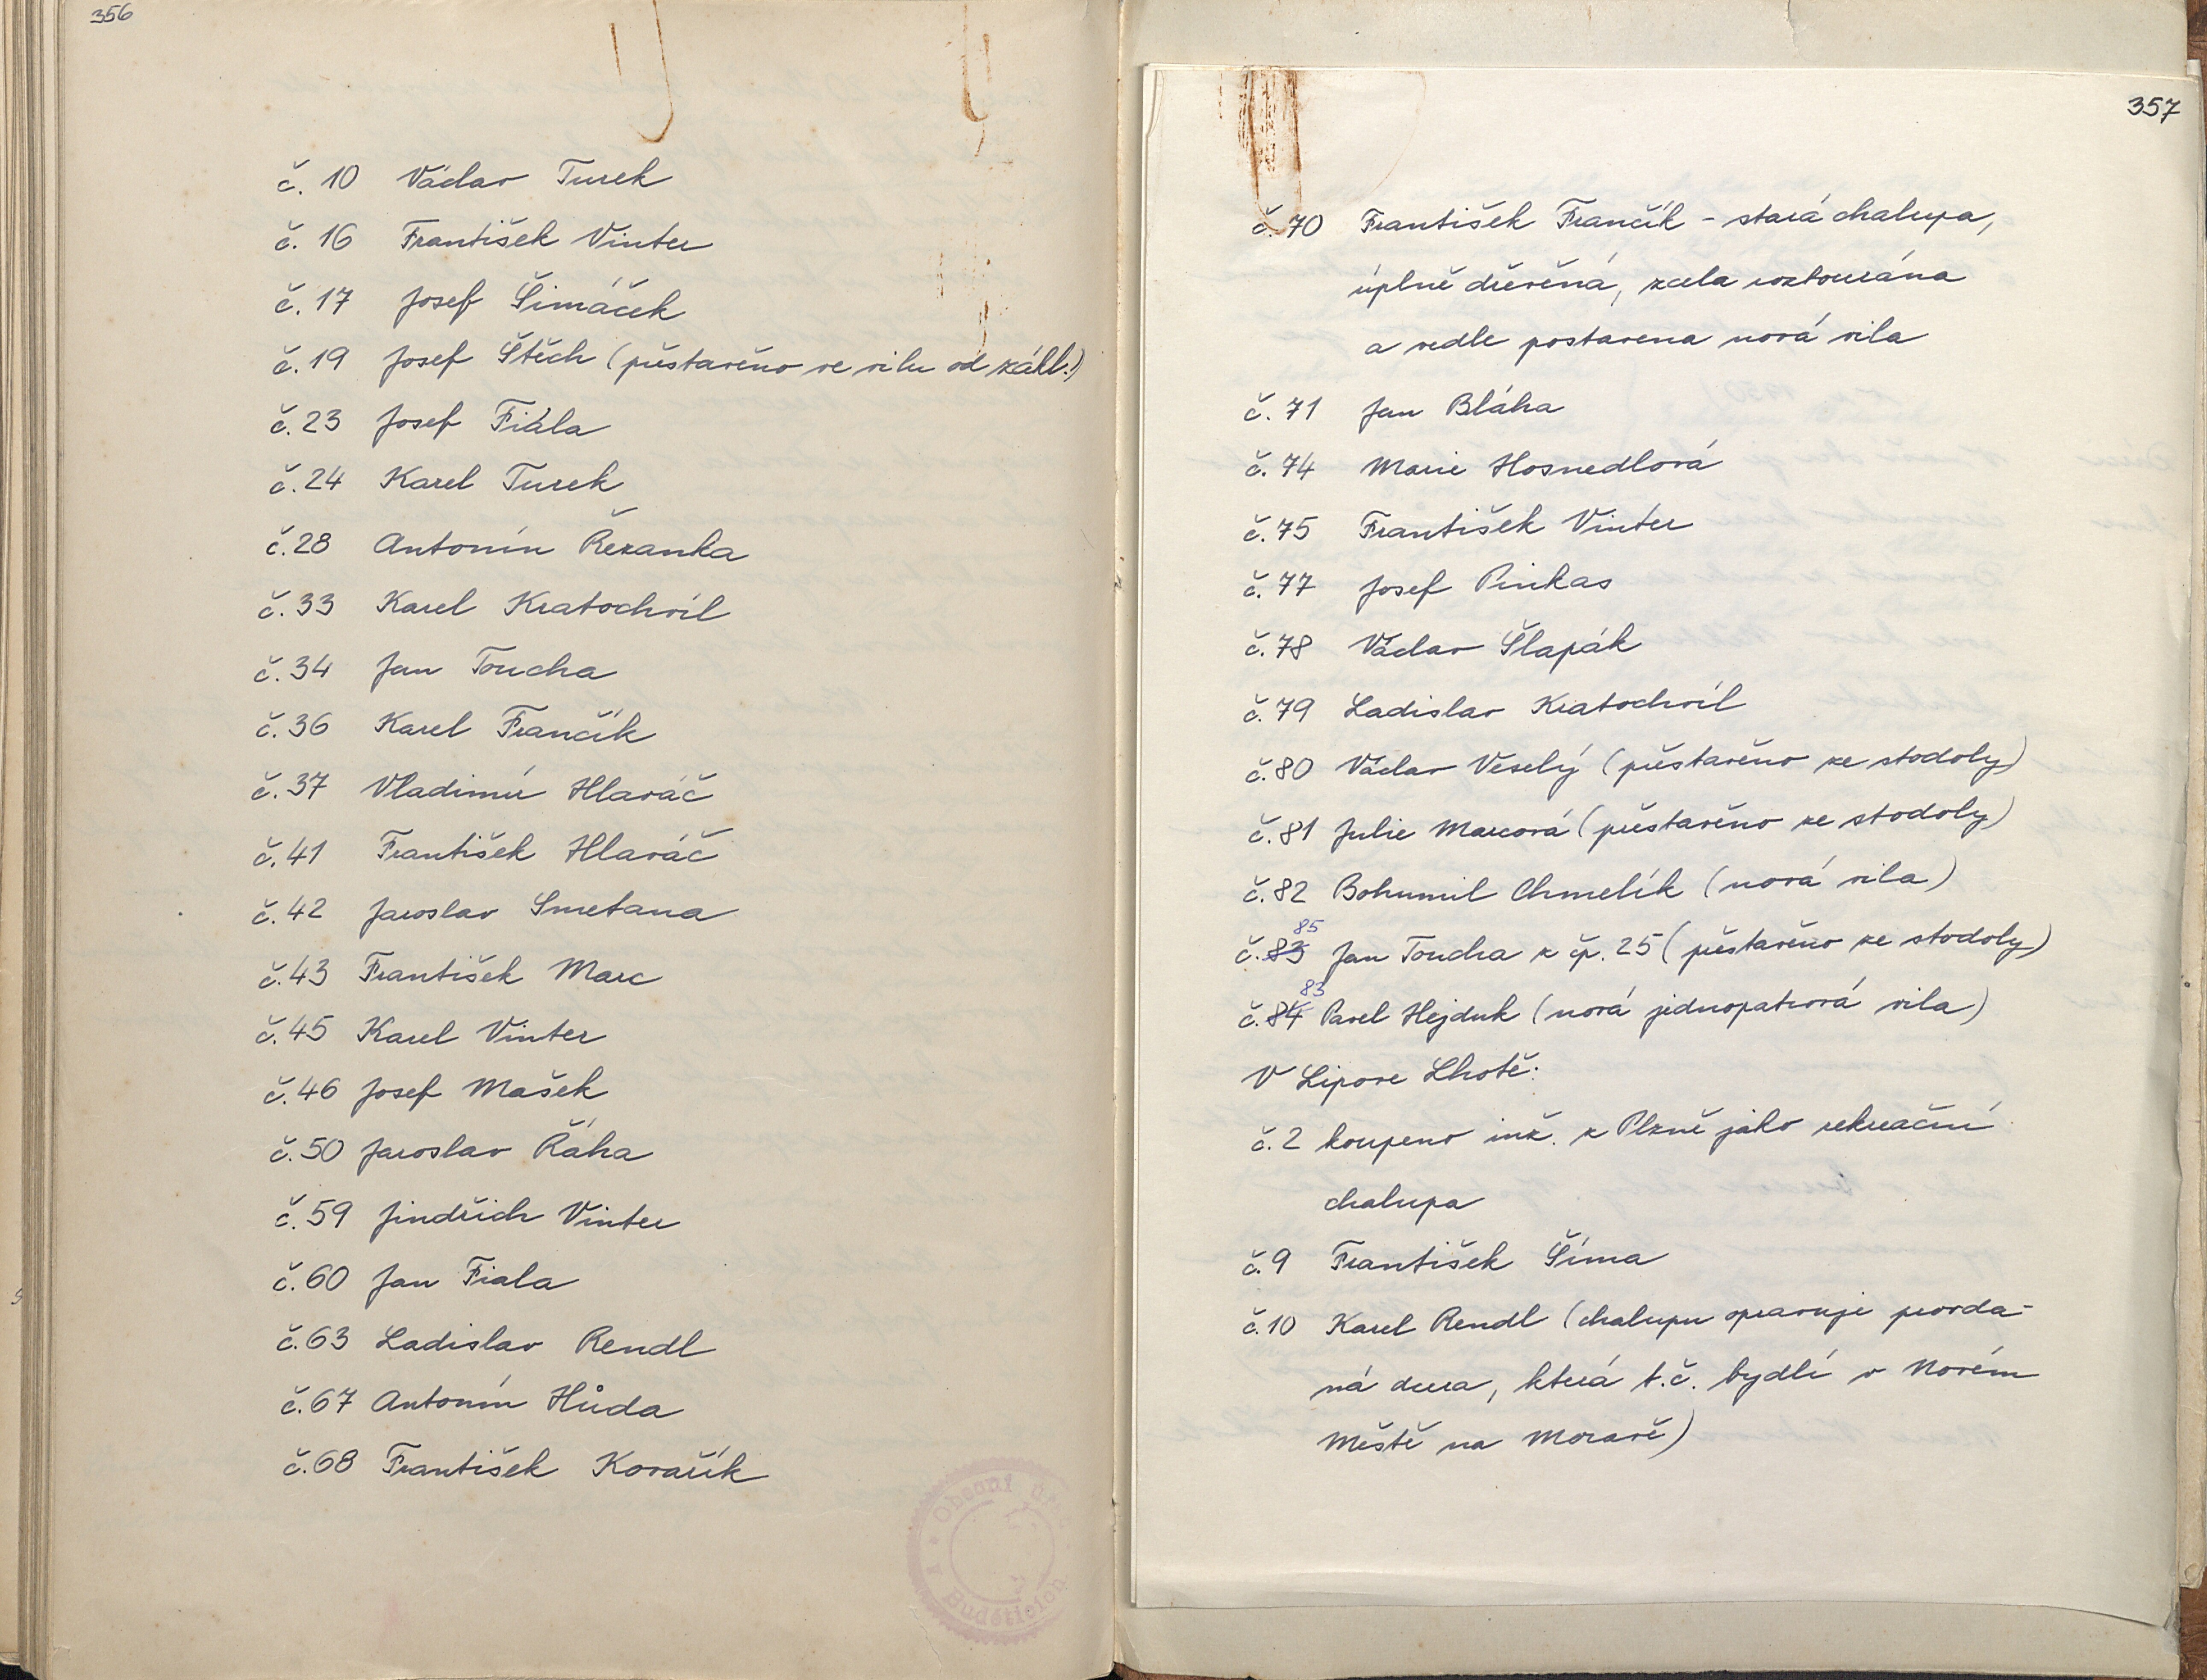 356
č. 10 Václav Turek
č. 16 František Vinter
č. 17 Josef Šimáček
č. 19 Josef Štěch (přestavěno ve vilu od zákl.!)
č. 23 Josef Fiala
č. 24 Karel Turek
č. 28 Antonín Řezanka
č. 33 Karel Kratochvíl
č. 34 Jan Toucha
č. 36 Karel Frančík
č. 37 Vladimír Hlaváč
č. 41 František Hlaváč
č. 42 Jaroslav Smetana
č. 43 František Marc
č. 45 Karel Vinter
č. 46 Josef Mašek
č. 50 Jaroslav Řáha
č. 59 Jindřich Vinter
č. 60 Jan Fiala
č. 63 Ladislav Rendl
č. 67 Antonín Hůda
č. 68 František Kovařík
Obecní
Budětice
357
č. 70 František Frančík - stará chalupa,
úplně dřevěná, zcela roztourána
a vedle postavena nová vila
č. 71 Jan Bláha
č. 74 Marie Hosnedlová
č. 75 František Vinter
č. 77 Josef Pinkas
č. 78 Václav Šlapák
č. 79 Ladislav Kratochvíl
č. 80 Václav Veselý (přestavěno ze stodoly)
č. 81 Julie Marcová (přestavěno ze stodoly)
č. 82 Bohumil Chmelík (nová vila)
85
č. 83 Jan Toucha z čp. 25 (přestavěno ze stodoly)
83
č. 84 Pavel Hejduk (nová jednopatrová vila)
V Lipove Lhotě:
č. 2 koupeno inž. z Plzně jako rekreační
chalupa
č. 9 František Šíma
č. 10 Karel Rendl (chalupu opravuje provda-
ná dcera, která t.č. bydlí v Novém
Městě na Moravě)